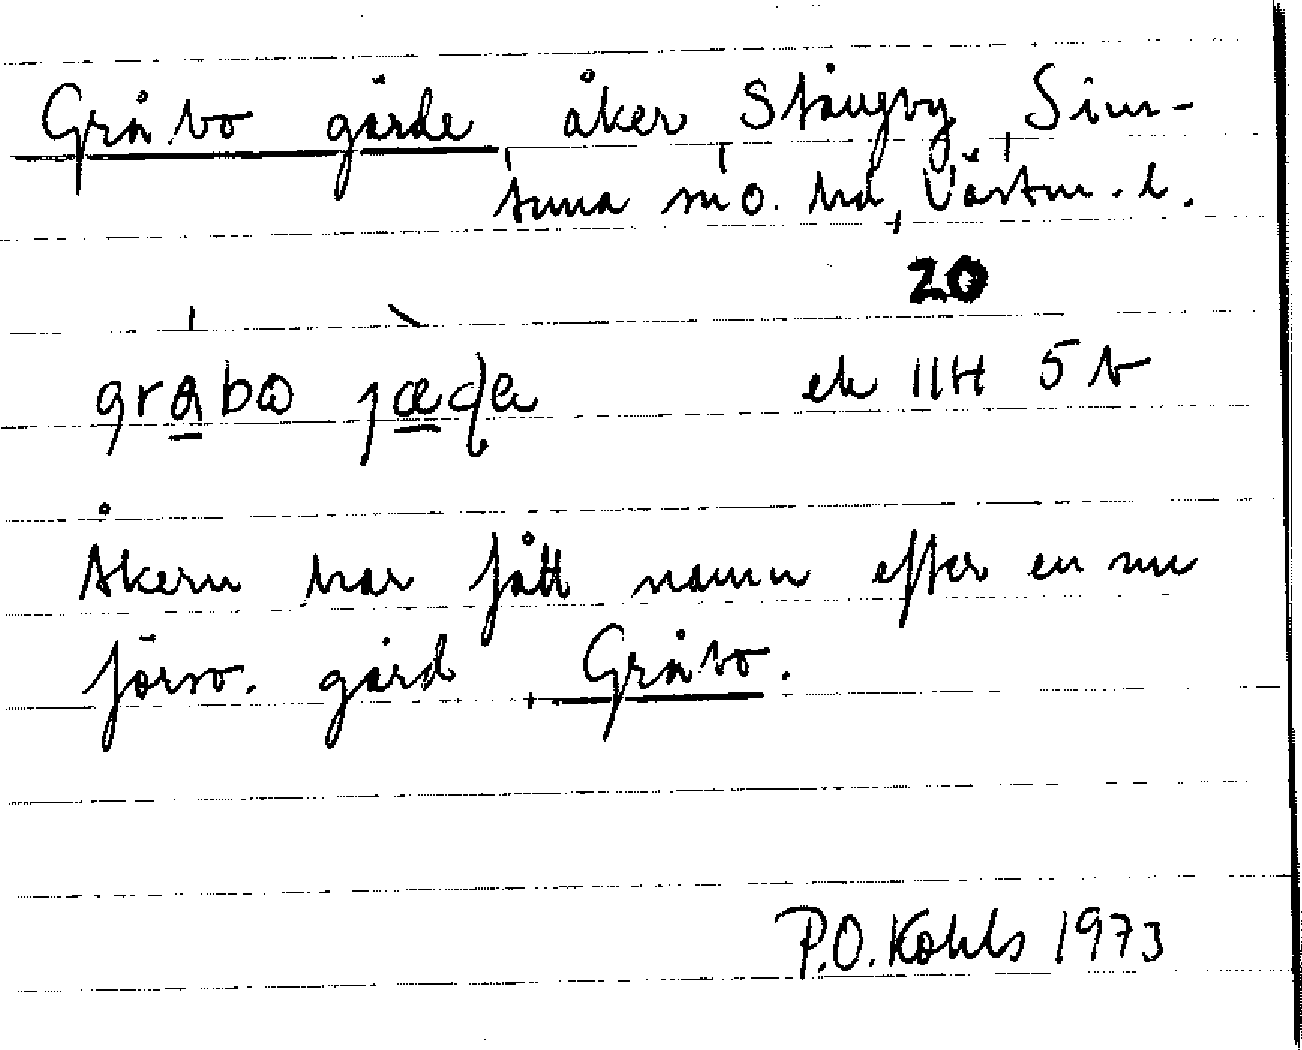 Gråbo gärde åker Stångby, Sim-
tuna sn o. hd, Västm. l.
20
gråbω jæḍa ek 11H 5 b
Åkern har fått namn efter en nu
försv. gård Gråbo.
P.O. Kohls 1973